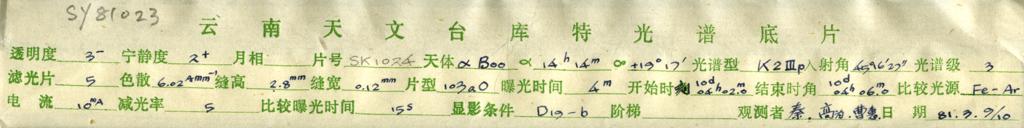 SY81023
云南天文台库特光谱底片
透明度 3⁻ 宁静度 2⁺ 月相 片号 SK1024 天体 α Boo α 14ʰ 14ᵐ δ +19° 17′ 光谱型 K2Ⅲp 入射角 45°16′27″ 光谱级 3
滤光片 5 色散 6.02 Åmm⁻¹ 缝高 2.8ᵐᵐ 缝宽 0.12ᵐᵐ 片型 103aO 曝光时间 4ᵐ 开始时刻 10ᵈ04ʰ02.0ᵐ 结束时角 10ᵈ04ʰ06.0ᵐ 比较光源 Fe-Ar
电流 10ᵐᴬ 减光率 5 比较曝光时间 15ˢ 显影条件 D19-b 阶梯 观测者 秦, 高 曹 日期 81.3.9/10